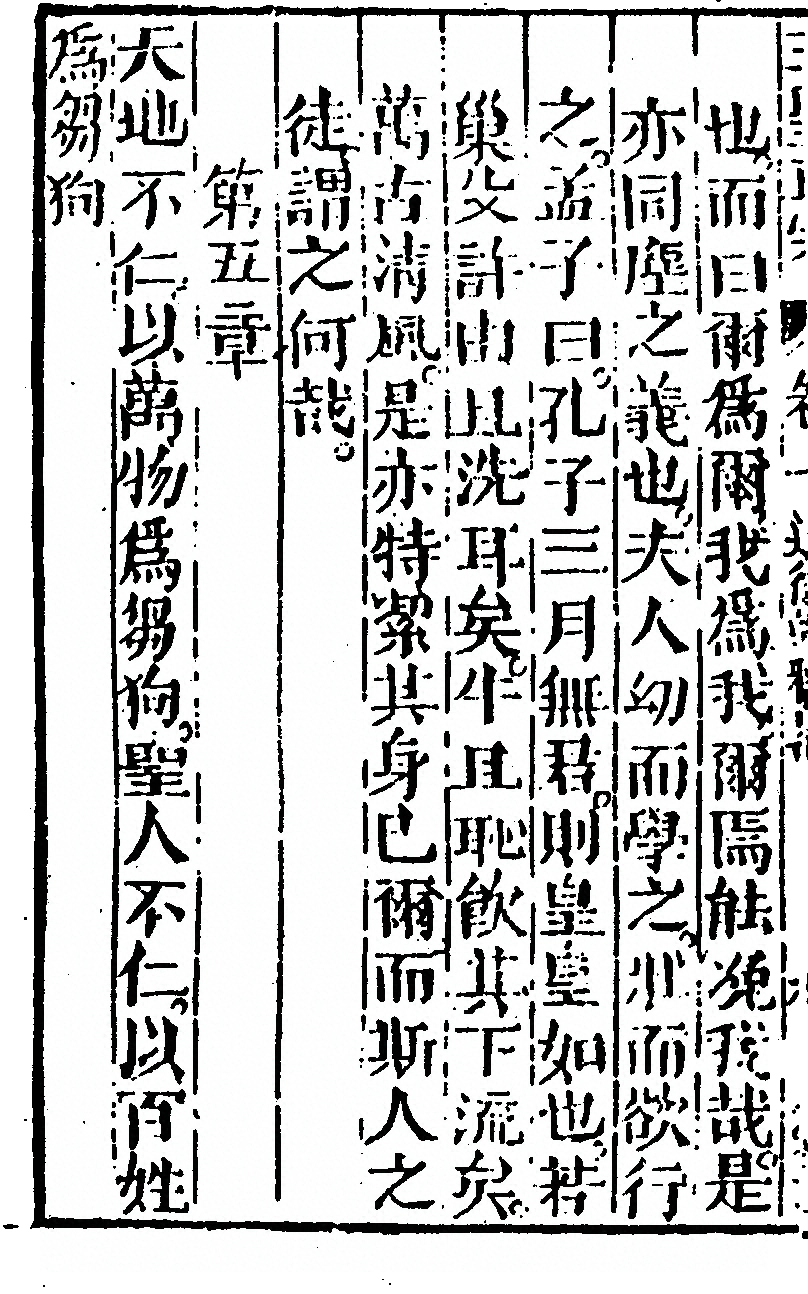 也而曰爾爲爾我爲我爾焉能凂我哉。是
亦同塵之義也。夫人幼而學之。壯而欲行
之。孟子曰。孔子三月無君。則皇皇如也。若
巢父許由且洗耳矣。牛且恥飮其下流矣。
萬古淸風。是亦特潔其身已爾而斯人之
徒謂之何哉。
第五章
天地不仁。以萬物爲芻狗。聖人不仁。以百姓
爲芻狗